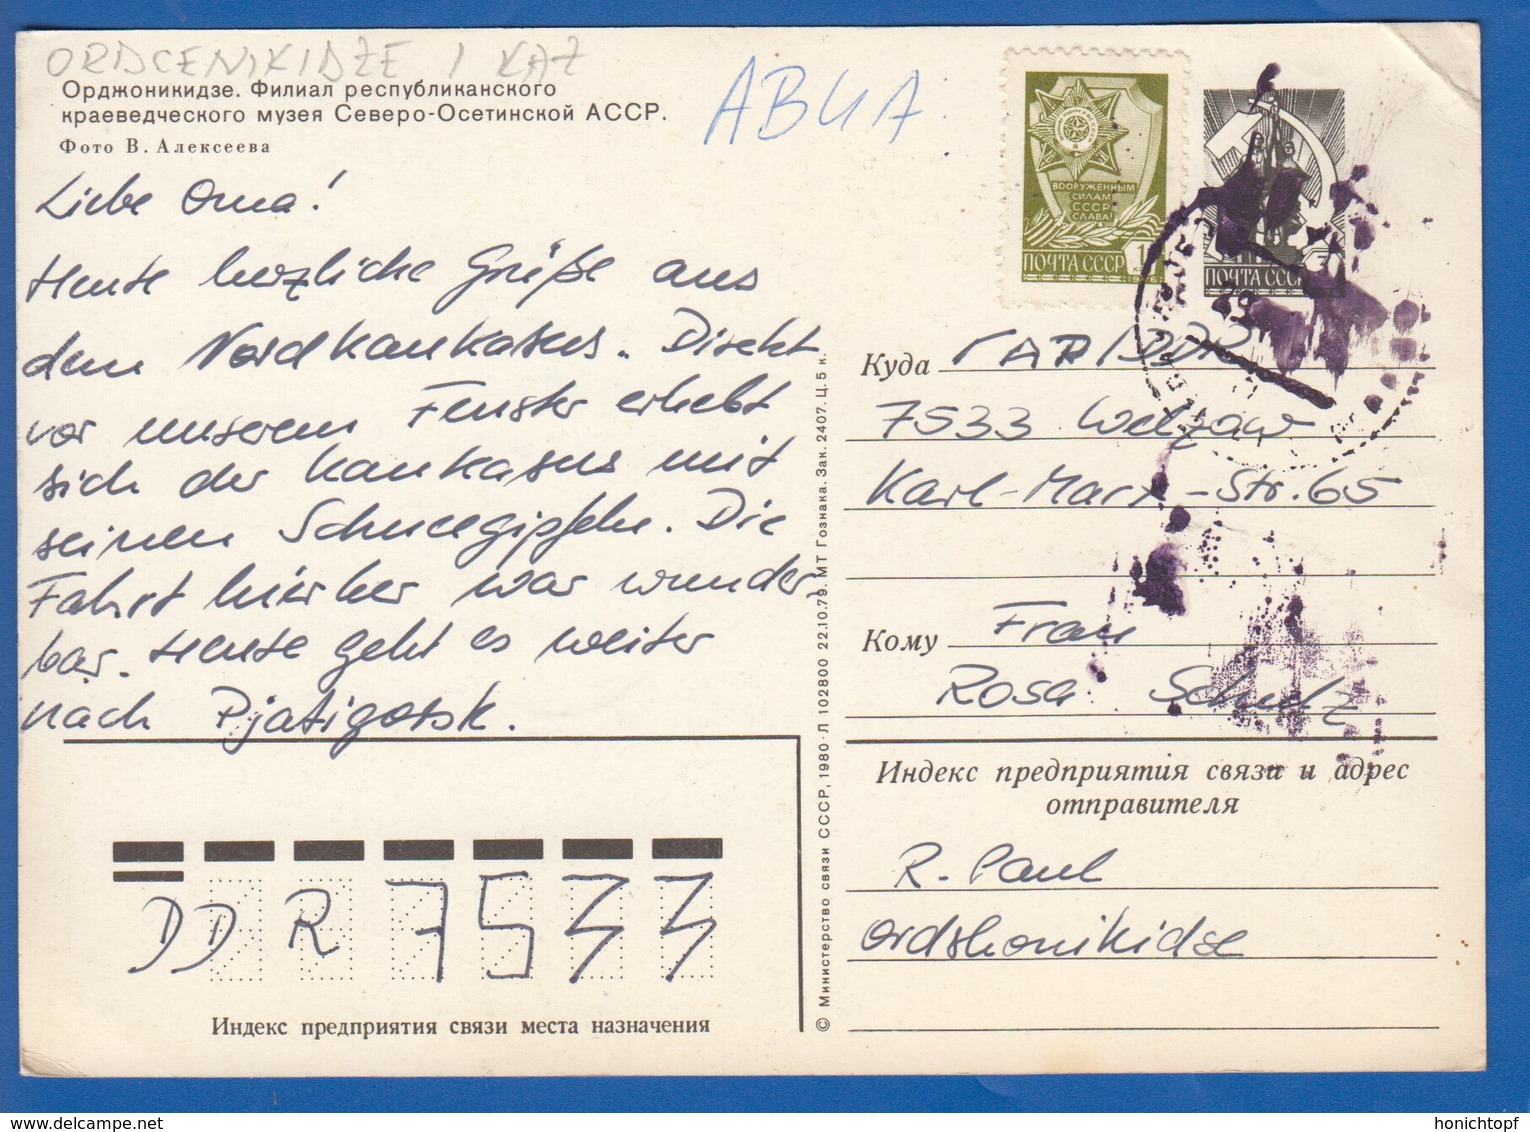 ORDCENIKIDZE / KAZ
Орджоникидзе. Филиал республиканского
краеведческого музея Северо-Осетинской АССР.
Фото В. Алексеева
АВИА
ВООРУЖЕННЫМ
СИЛАМ
СССР
СЛАВА!
ПОЧТА СССР
1976
ПОЧТА СССР
Liebe Oma!
Heute herzliche Grüße aus
dem Nordkaukasus. Direkt
vor unserem Fenster erhebt
sich der Kaukasus mit
seinen Schneegipfeln. Die
Fahrt hierher war wunder-
bar. Heute geht es weiter
nach Pjatigorsk.
Куда
DDR
7533 Welzow
Karl-Marx-Str. 65
Кому Frau
Rosa Schulz
Индекс предприятия связи и адрес
отправителя
R. Paul
Ordshonikidse
DDR 7533
Индекс предприятия связи места назначения
© Министерство связи СССР, 1980 Л 102800 22.10.79. МТ Гознака. Зак. 2407. Ц. 5 к.
honichtopf